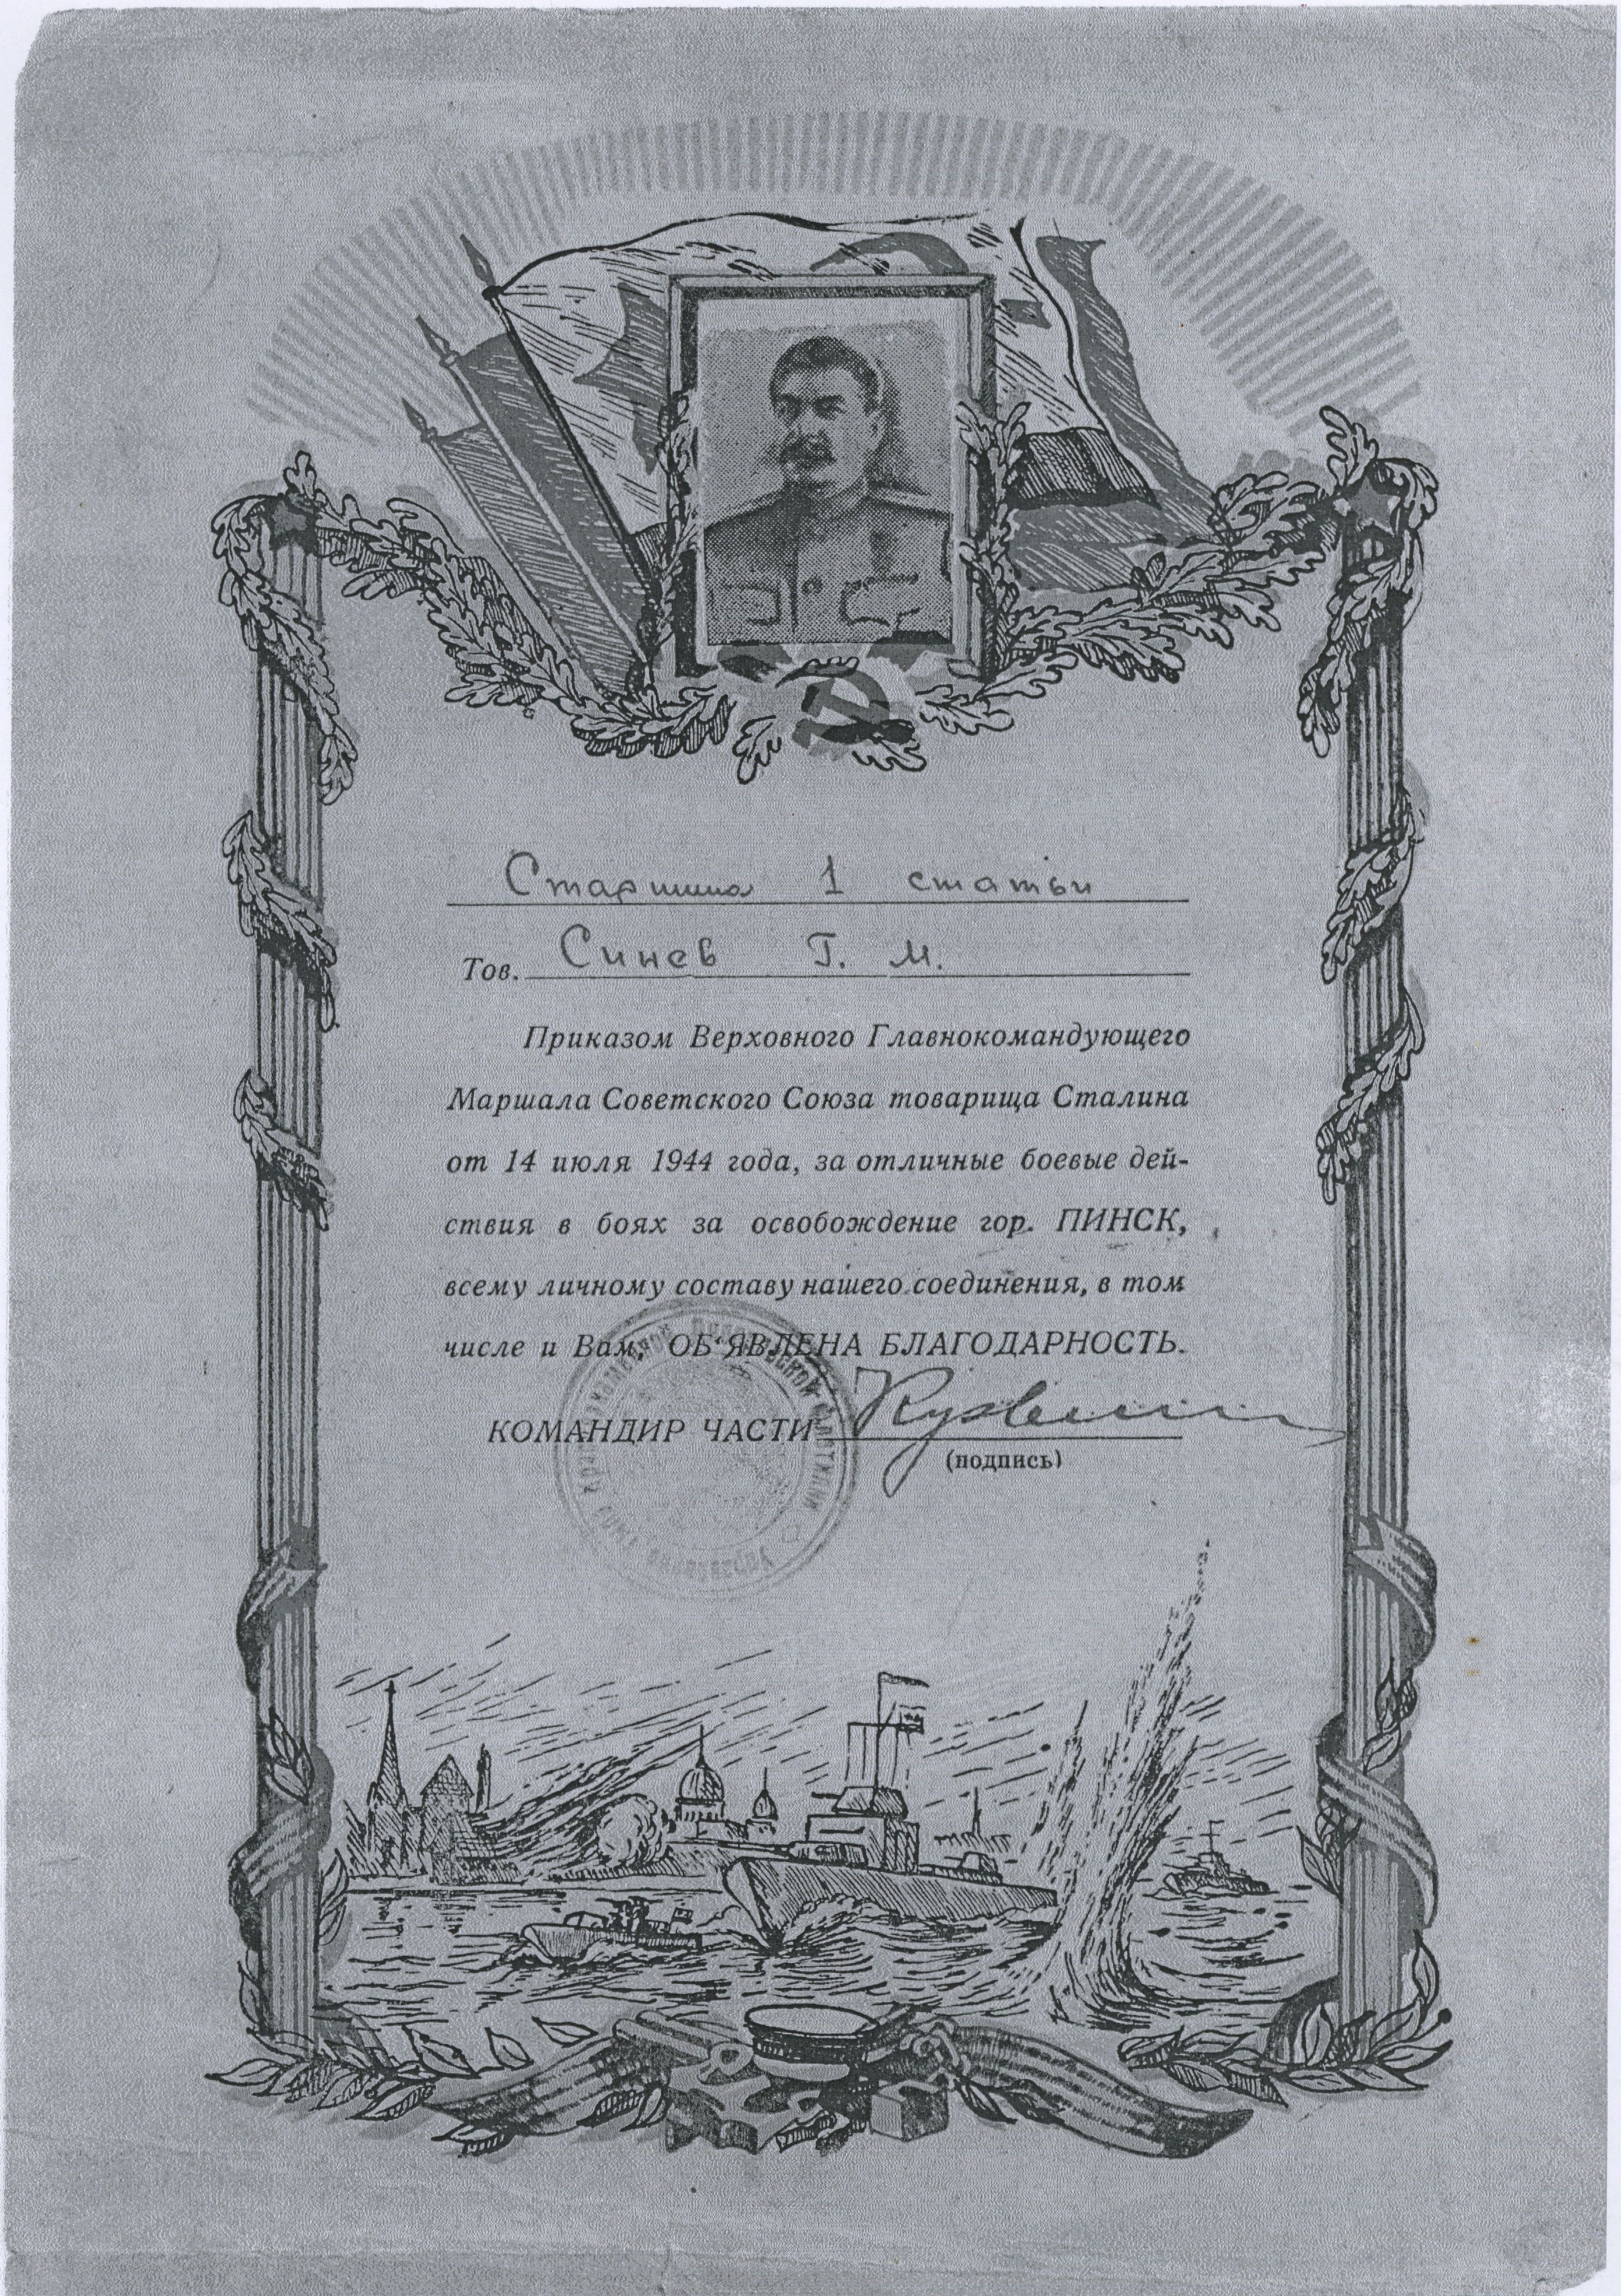 Старшина 1 статьи
Тов. Синев Г. М.
Приказом Верховного Главнокомандующего
Маршала Советского Союза товарища Сталина
от 14 июля 1944 года, за отличные боевые дей-
ствия в боях за освобождение гор. ПИНСК,
всему личному составу нашего соединения, в том
числе и Вам, ОБ'ЯВЛЕНА БЛАГОДАРНОСТЬ.
КОМАНДИР ЧАСТИ
(подпись)